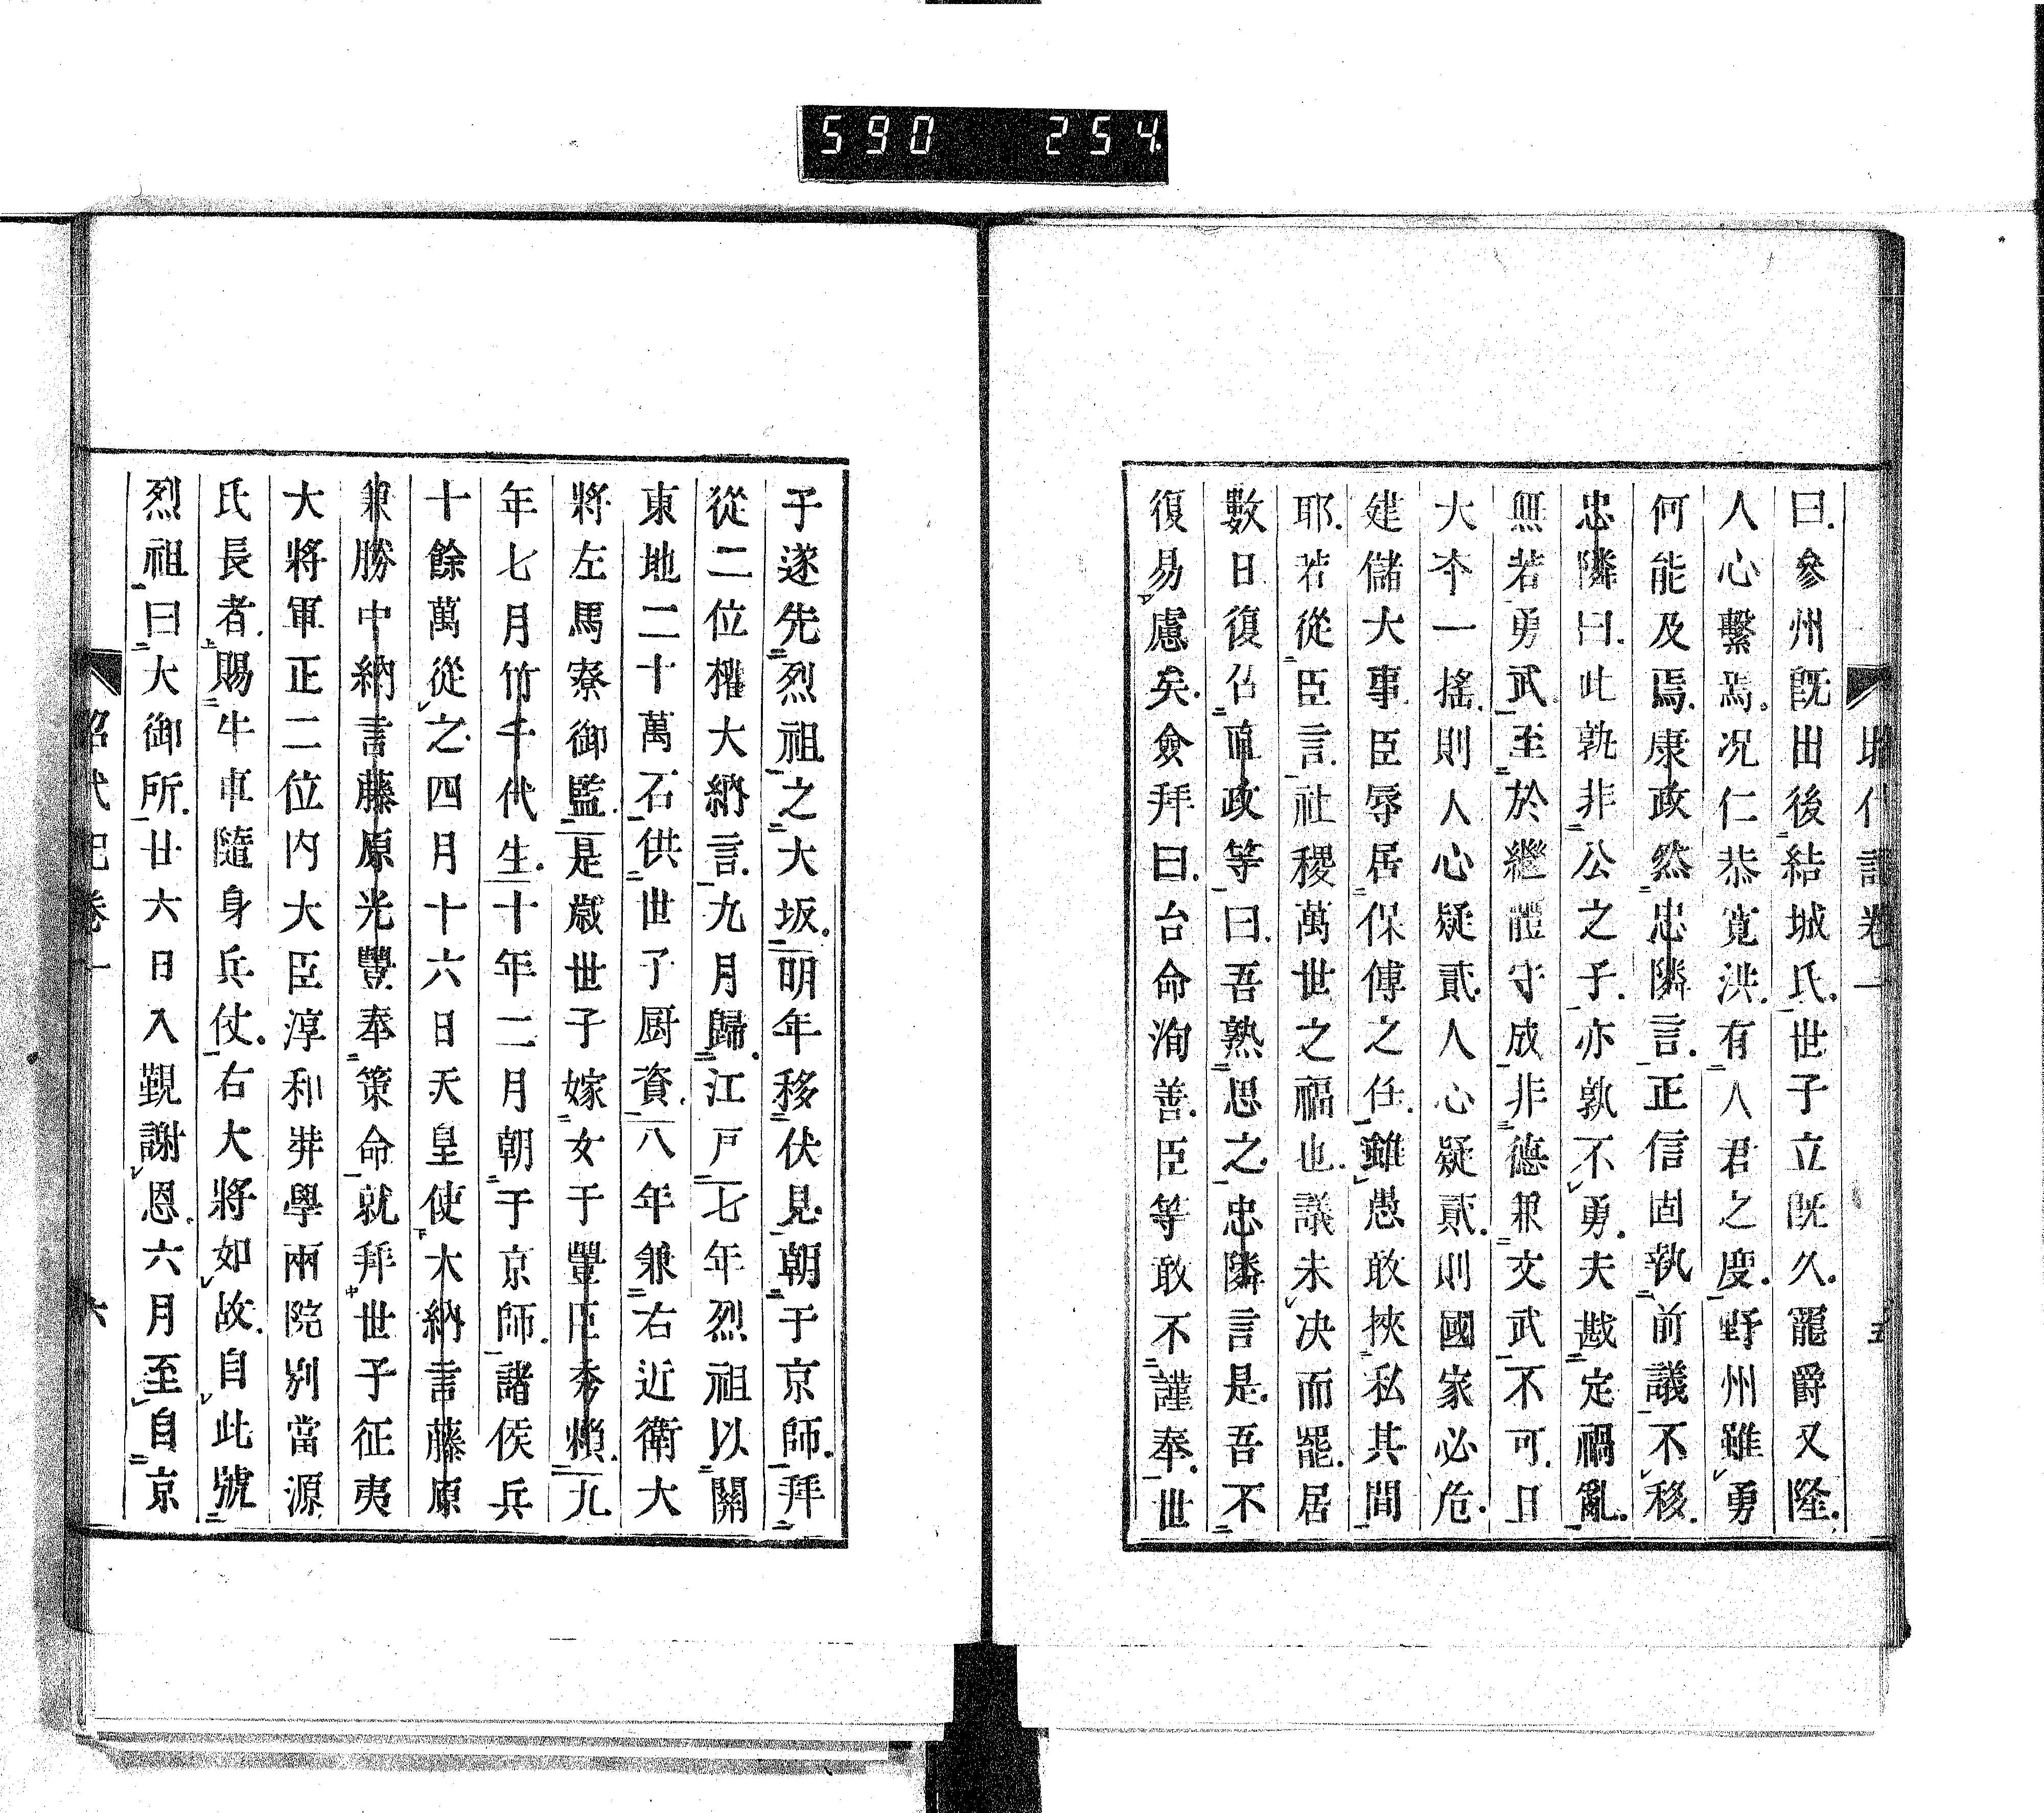 590 254
昭代記卷一 五
曰.參州既出後結城氏.世子立既久.寵爵又隆.
人心繫焉.况仁恭寬洪.有人君之度.野州雖勇
何能及焉.康政然忠隣言.正信固執前議不移.
忠隣曰.此孰非公之子.亦孰不勇.夫戡定禍亂.
無若勇武.至於繼體守成.非德兼文武不可.且
大夲一搖.則人心疑貳.人心疑貳.則國家必危.
建儲大事.臣辱居保傅之任.雖愚敢挾私其間
耶.若從臣言.社稷萬世之福也.議未决而罷.居
數日復召直政等曰.吾熟思之.忠隣言是.吾不
復易慮矣.僉拜曰.台命洵善.臣等敢不謹奉.世
子遂先烈祖之大坂.明年移伏見.朝于京師.拜
從二位權大納言.九月歸.江戸七年烈祖以關
東地二十萬石供世子厨資.八年兼右近衛大
將左馬寮御監.是歲世子嫁女于豐臣秀賴.九
年七月竹千代生.十年二月朝于京師.諸侯兵
十餘萬從之.四月十六日天皇使大納言藤原
兼勝中納言藤原光豐奉策命就拜世子征夷
大將軍正二位内大臣淳和弉學兩院別當源
氏長者.賜牛車隨身兵仗.右大將如故.自此號
烈祖曰大御所.廿六日入覲謝恩.六月至自京
昭代記卷一 六